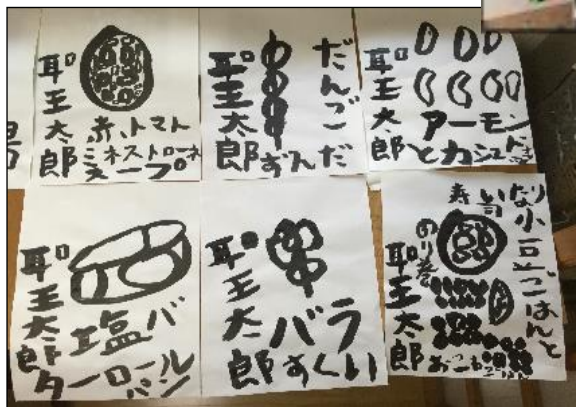 聖太郎
赤いトマト
ミネストローネ
スープ
だんご
ずんだ
聖太郎
アーモン
とカシュー
聖太郎
塩バ
ターロール
パン
聖太郎
バラ
すくい
聖太郎
いなり
寿司
小豆ごはんと
のり巻
聖太郎
おこわごはん